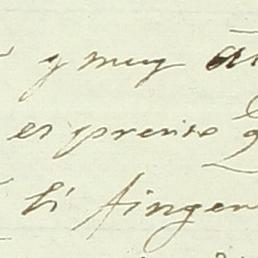 y muy
es preciso q
si fingen